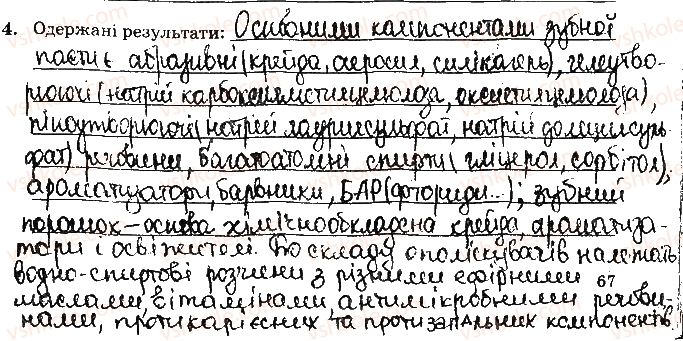 4. Одержані результати: Основними компонентами зубної
пасти є абразивні (крейда, аеросил, силікагель), гелеутво-
рюючі (натрій карбоксилметилцелюлоза, оксиетилцелюлоза),
піноутворюючі (натрій лаурилсульфат, натрій додецилсуль
фат) речовини, багатоатомні спирти (гліцерол, сорбітол),
ароматизатори, барвники, БАР (фториди...); зубний
порошок – основа хімічнообкладена крейда, ароматиза-
тори і освіжителі. До складу ополіскувачів належать
водно-спиртові розчини з різними ефірними 67
маслами, вітамінами, антимікробними речови-
нами, протикарієсних та протизапальних компонентів